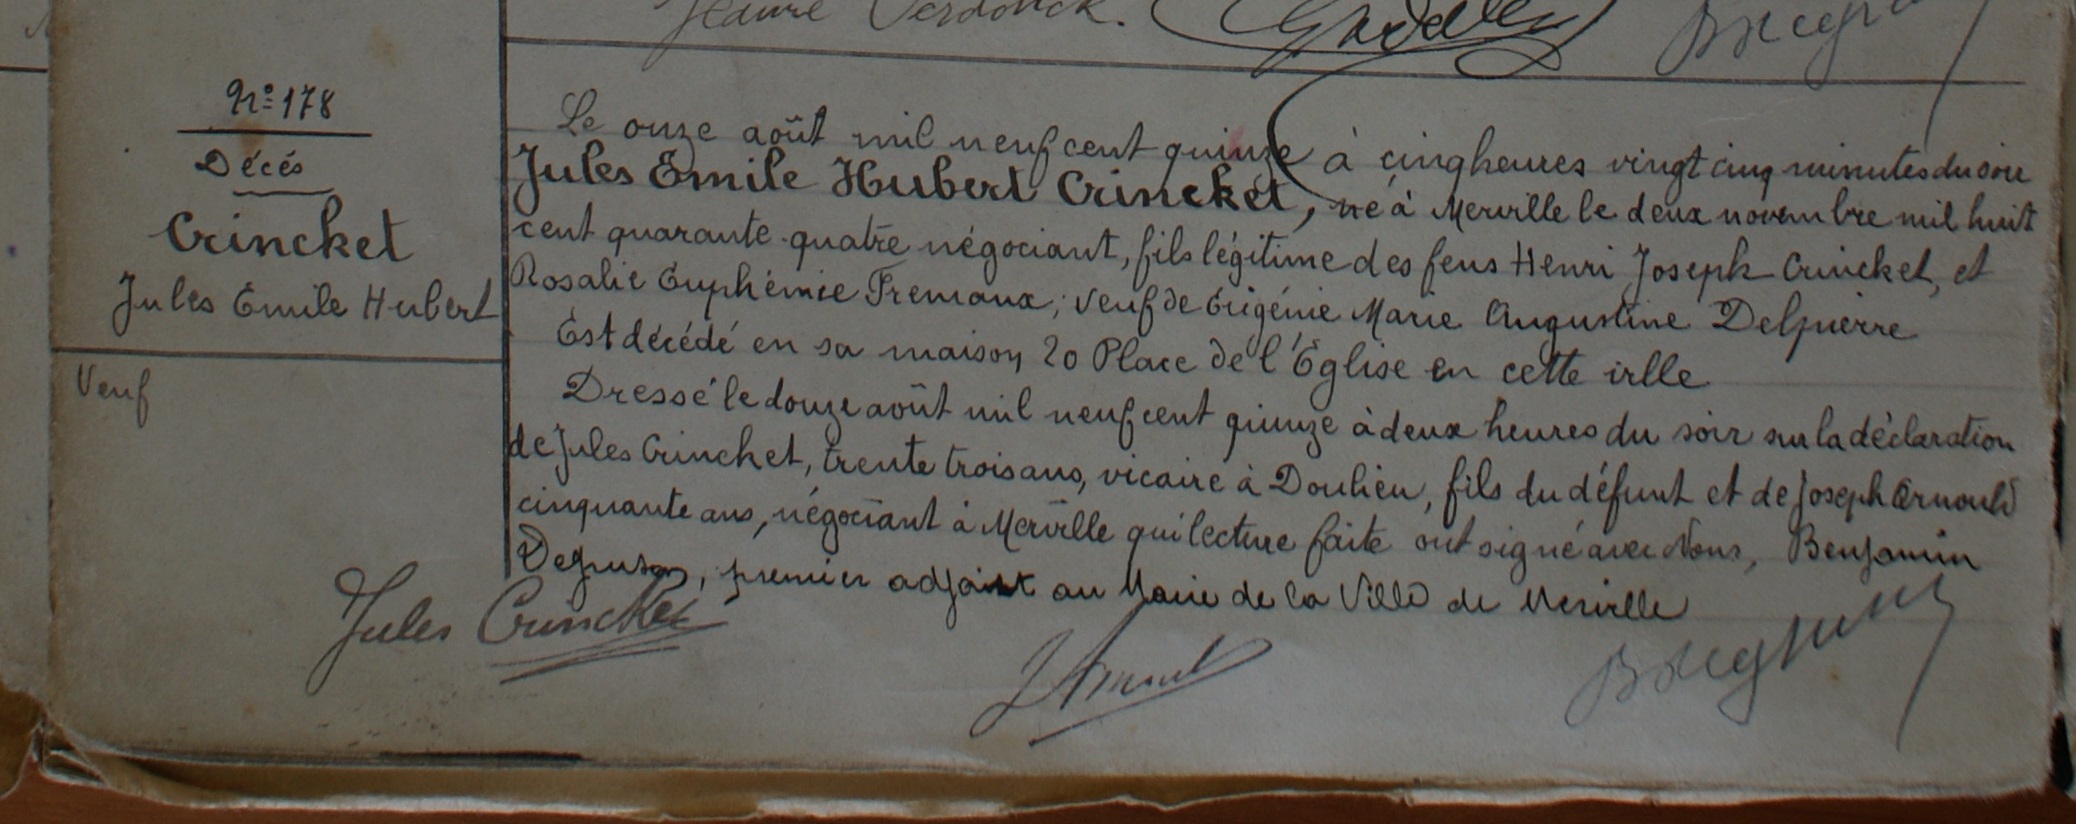 Jeanne Verdonck.
N° 178
Décès
Crincket
Jules Emile Hubert
Veuf
Le onze août mil neuf cent quinze à cinq heures vingt cinq minutes du soir
Jules Emile Hubert Crincket, né à Merville le deux novembre mil huit
cent quarante-quatre négociant, fils légitime des feus Henri Joseph Crincket, et
Rosalie Euphémie Fremaux; veuf de Eugénie Marie Augustine Delpierre
Est décédé en sa maison, 20 Place de l'Église en cette ville
Dressé le douze août mil neuf cent quinze à deux heures du soir sur la déclaration
de Jules Crincket, trente trois ans, vicaire à Doulieu, fils du défunt et de Joseph Arnould
cinquante ans, négociant à Merville qui lecture faite ont signé avec Nous, Benjamin
, premier adjoint au Maire de la Ville de Merville
Jules Crincket